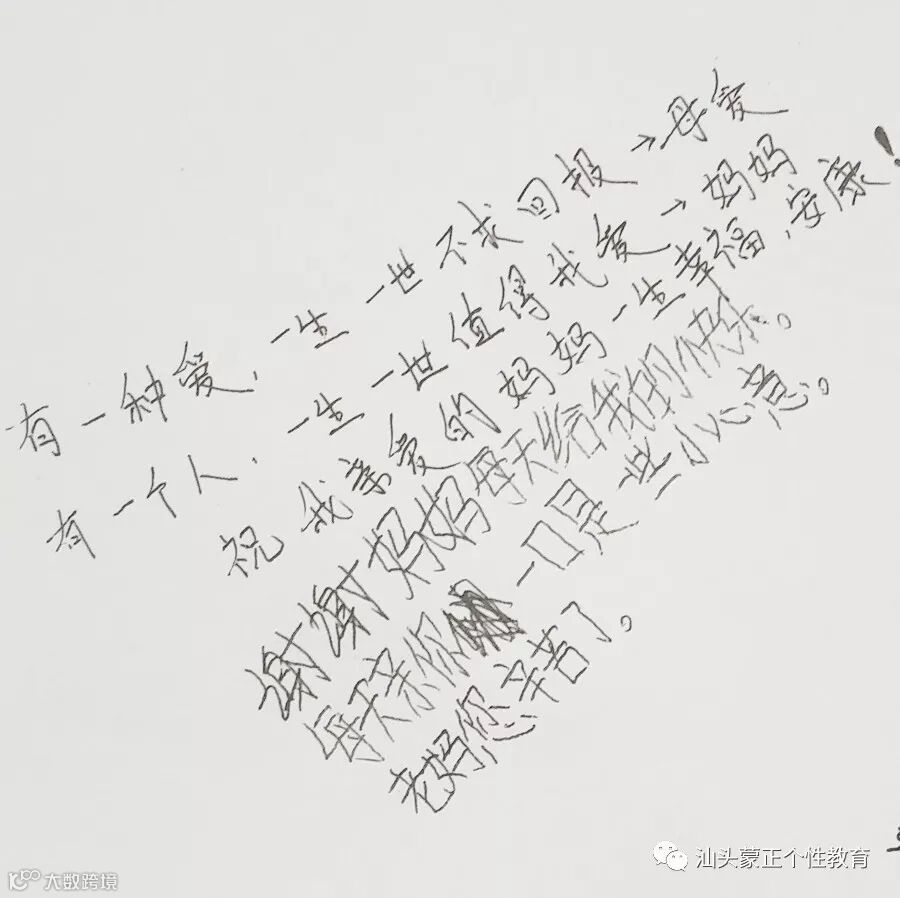 有一种爱,一生一世不求回报→母爱
有一个人,一生一世值得我爱→妈妈
祝我亲爱的妈妈一生幸福,安康!
谢谢妈妈每天给我的快乐。
每天亲你一口是一些小心意。
老妈,您辛苦了。
汕头蒙正个性教育
大数跨境